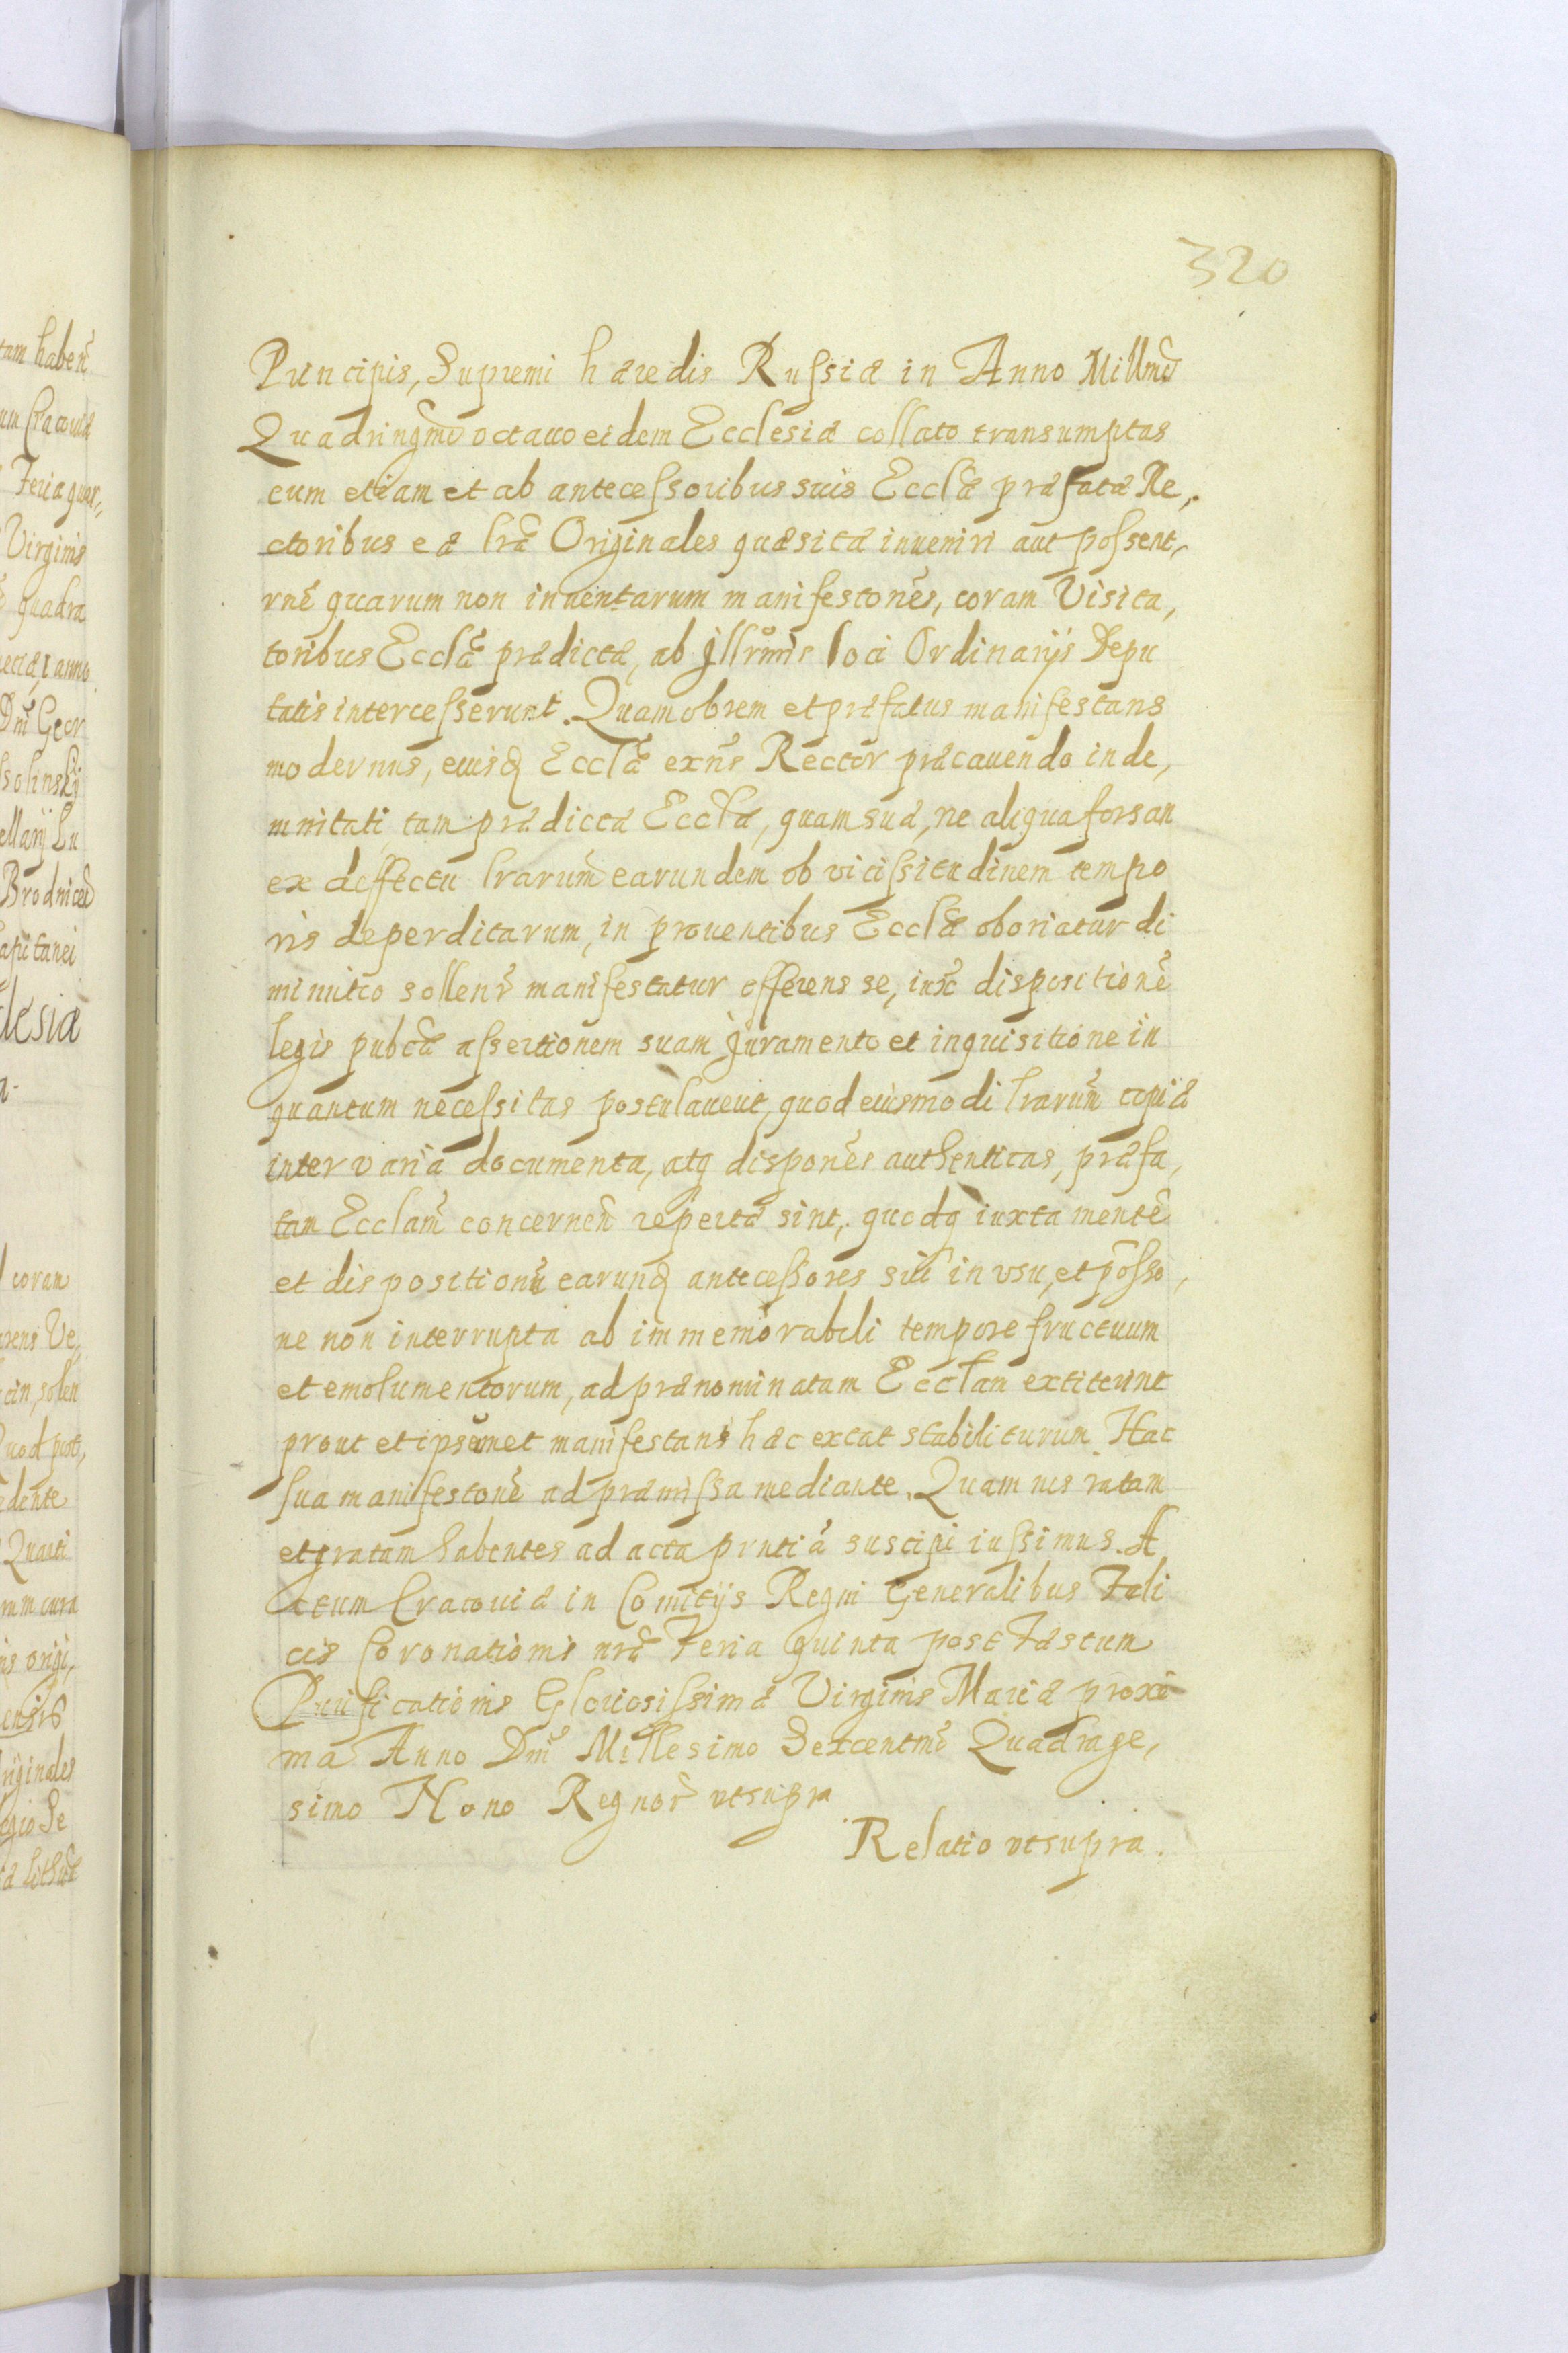 320
Principis, Supremi hæredis Russiæ in Anno Millmo
Quadringmo octauo eidem Ecclesiæ collato transumptas
cum etiam et ab antecessoribus suis Ecclæ præfatæ Re,
ctoribus eæ lræ Originales quæsitæ inueniri aut possent,
rnẽ quarum non inuentarum manifestones, coram Visita,
toribus Ecclæ prædictæ, ab Jllrmis loci Ordinarijs Depu
tatis intercesserunt. Quamobrem et præfatus manifestans
modernus, eiusq Ecclæ exñs Rector præcauendo inde,
mnitati tam prædictæ Ecclæ, quam suæ, ne aliqua forsan
ex deffectu lrarum earundem ob vicissitudinem tempo
ris deperditarum, in prouentibus Ecclæ oboriatur di
minutio sollenr manifestatur offerens se, iux dispositionẽ
legis pubcæ assertionem suam Juramento et inquisitione in
quantum necessitas postulauerit, quod eiusmodi lrarum copiæ
inter varia documenta, atq dispones authenticas, præfa,
tam Ecclam concernen repertæ sint, quodq iuxta mentẽ
et dispositionũ earunq antecessores sui in vsu, et possõ,
ne non interrupta ab immemorabili tempore fructuum
et emolumentorum, ad prænominatam Ecclam extiterint
prout et ipsemet manifestans hæc extat stabiliturum Hac
sua manifestonẽ ad præmissa mediante. Quam nos ratam
et gratam habentes ad acta prntia suscipi iussimus. A
ctum Cracouiæ in Comitijs Regni Generalibus Fæli
cis Coronationis nræ Feria quinta post Fæstum
Purificationis Gloriosissimæ Virginis Mariæ proxi
ma Anno Dni Millesimo Sexcentmo Quadrage,
simo Nono Regnor vtsupra
Relatio vtsupra.